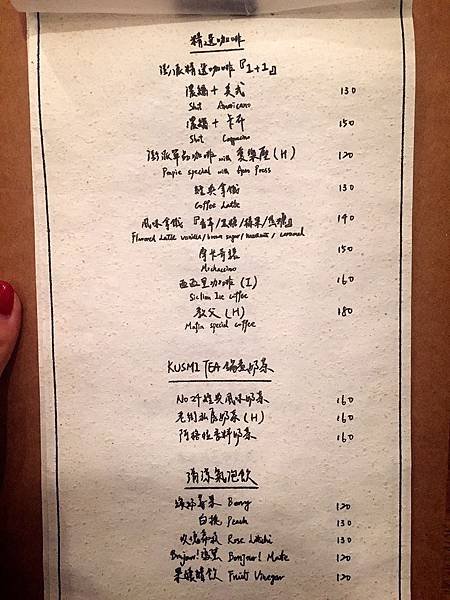 精選咖啡
澎派精選咖啡『1+1』
濃縮 + 美式 130
Shot Americano
濃縮 + 卡布 150
Shot Cappuccino
澎派單品咖啡 with 愛樂壓 (H) 120
special with Press
經典拿鐵 130
Coffee Latte
風味拿鐵『香草/黑糖/榛果/焦糖』 140
Flavored Latte vanilla/brown sugar/hazelnut/caramel
摩卡奇諾 150
Mochaccino
西西里咖啡 (I) 160
Sicilian Ice coffee
教父 (H) 180
Mafia special coffee
KUSMI TEA 鍋煮奶茶
No 24 經典風味奶茶 160
老街私房奶茶 (H) 160
阿格拉香料奶茶 160
清涼氣泡飲
莓果 Berry 120
白桃 Peach 130
荔枝 Rose Litchi 130
Bonjour! Bonjour! Mate 120
果醋飲 Fruit Vinegar 120